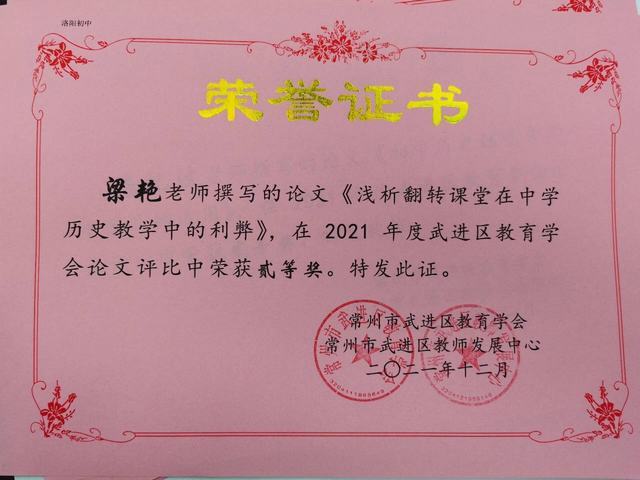 洛阳初中
荣誉证书
梁艳老师撰写的论文《浅析翻转课堂在中学
历史教学中的利弊》，在 2021 年度武进区教育学
会论文评比中荣获贰等奖。特发此证。
常州市武进区教育学会
常州市武进区教师发展中心
二〇二一年十二月